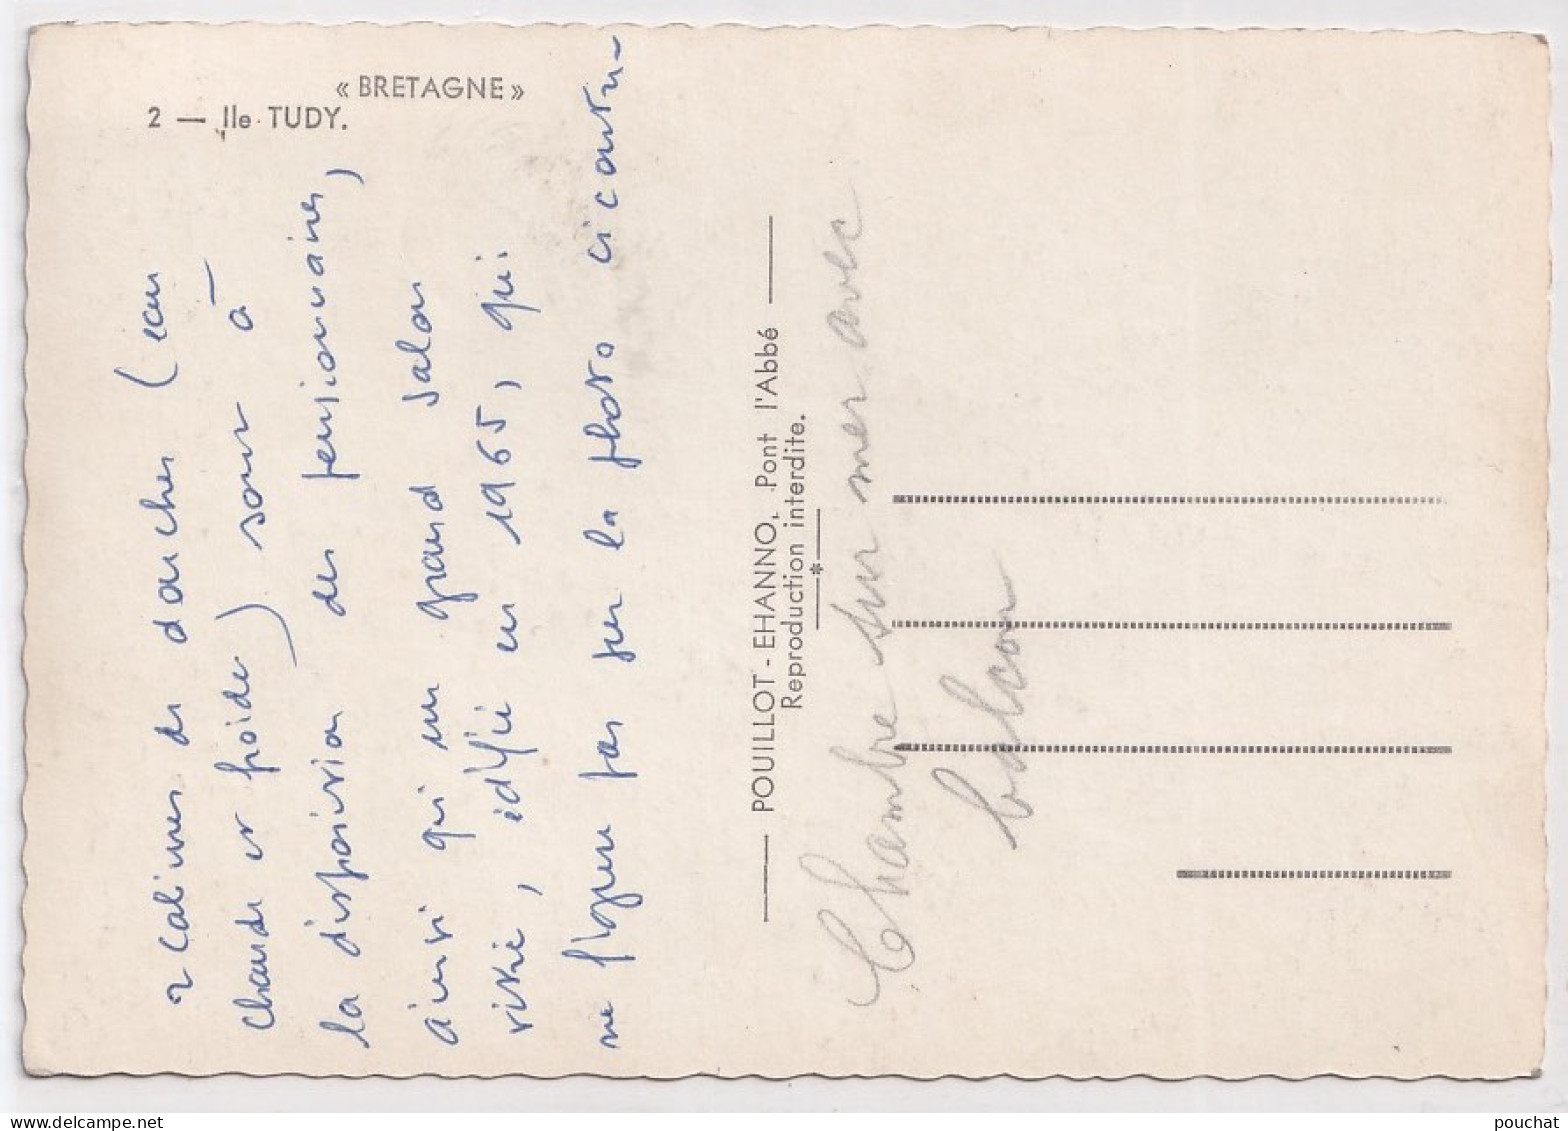 « BRETAGNE »
2 — Ile TUDY.
2 cabines de douches (eau
chaude et froide) sont à
la disposition des pensionnaires,
ainsi qu'un grand salon
vitré, édifié en 1965, qui
ne figure pas sur la photo ci contre
POUILLOT - EHANNO, Pont l'Abbé
Reproduction interdite.
*
Chambre sur mer avec
balcon
www.delcampe.net
pouchat